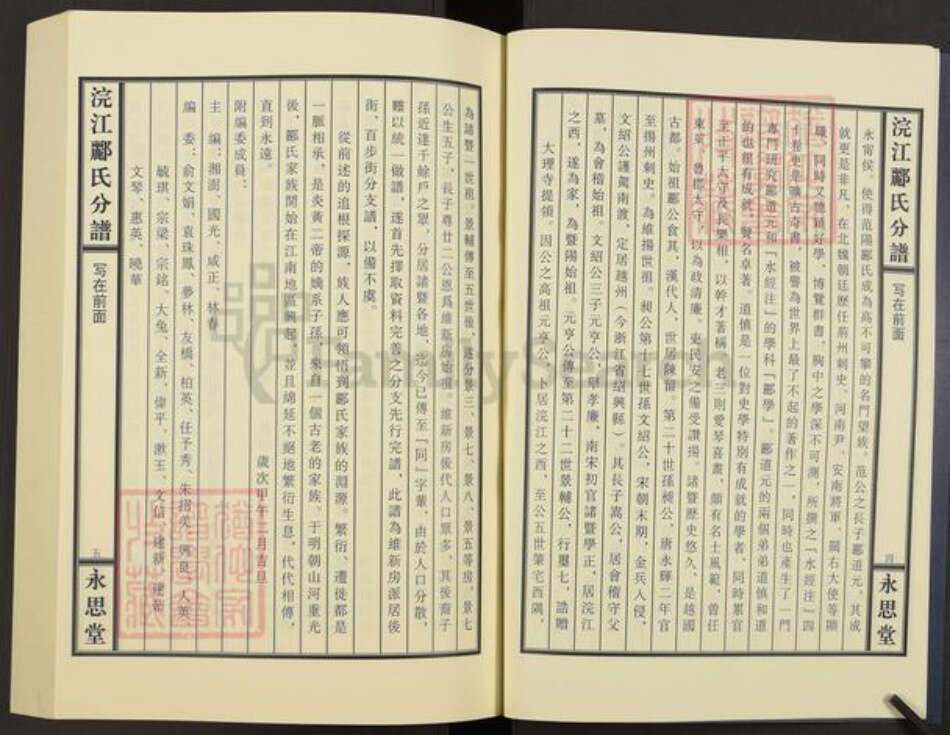 浣江酈氏分譜
写在前面
四
永思堂
永甯侯。使得范陽酈氏成為高不可攀的名門望族。范公之長子酈道元，其成
就更是非凡，在北魏朝廷歷任荊州刺史、河南尹、安南將軍、關右大使等顯
職，同時又聰穎好學，博覽群書，胸中之學深不可測，所撰之『水經注』四
十卷更是曠古奇書，被譽為世界上最了不起的著作之一，同時也產生了一門
專門研究酈道元和『水經注』的學科『酈學』。酈道元的兩個弟弟道慎和道
的也很有成就，賢名卓著。道慎是一位對史學特別有成就的學者，同時累官
至正平太守及長樂相，以幹才著稱，老三則愛琴喜畫，頗有名士風範，曾任
東萊、魯郡太守，以為政清廉、吏民安之備受讚揚。諸暨歷史悠久，是越國
古都。始祖酈公食其，漢代人，世居陳留。第二十世孫昶公，唐永輝二年官
至揚州刺史。為維揚世祖。昶公第十七世孫文紹公，宋朝末期，金兵入侵，
文紹公護駕南渡，定居越州（今浙江省紹興縣）。其長子嵩公，居會稽守父
墓，為會稽始祖。文紹公三子元亨公，舉孝廉，南宋初官諸暨學正，居浣江
之西，遂為家，為暨陽始祖。元亨公傳至第二十二世景輔公，行壓七，誥贈
大理寺提領。因公之高祖元亨公，卜居浣江之西，至公五世肇宅西隅，
為諸暨一世祖。景輔傳至五世後，遂分景三、景七、景八、景五等房，景七
公生五子，長子尊廿二公恩爲維新房始祖。維新房後代人口眾多，其後裔子
孫近達千餘戶之眾，分居諸暨各地，迄今已傳至『同』字輩，由於人口分散，
難以統一做譜，遂首先擇取資料完善之分支先行完譜，此譜為維新房派居後
街、百步街分支譜，以備不虞。
從前述的追根探源，族人應可領悟到酈氏家族的淵源。繁衍、遷徙都是
一脈相承，是炎黃二帝的嫡系子孫，來自一個古老的家族。于明朝山河重光
後，酈氏家族開始在江南地區興起，並且綿延不絕地繁衍生息，代代相傳，
直到永遠。
歲次甲午二月吉旦
附編委成員：
主　編：湘澍、國光、咸正、林春
編　委：俞文娟、袁珠鳳、夢林、友橋、柏英、任予秀、朱招美、興良、人英、
毓琪、宗梁、宗銘、大兔、全新、偉平、漱玉、文信、建新、建爺
文琴、惠英、曉華
浣江酈氏分譜
写在前面
五
永思堂
FamilySearch